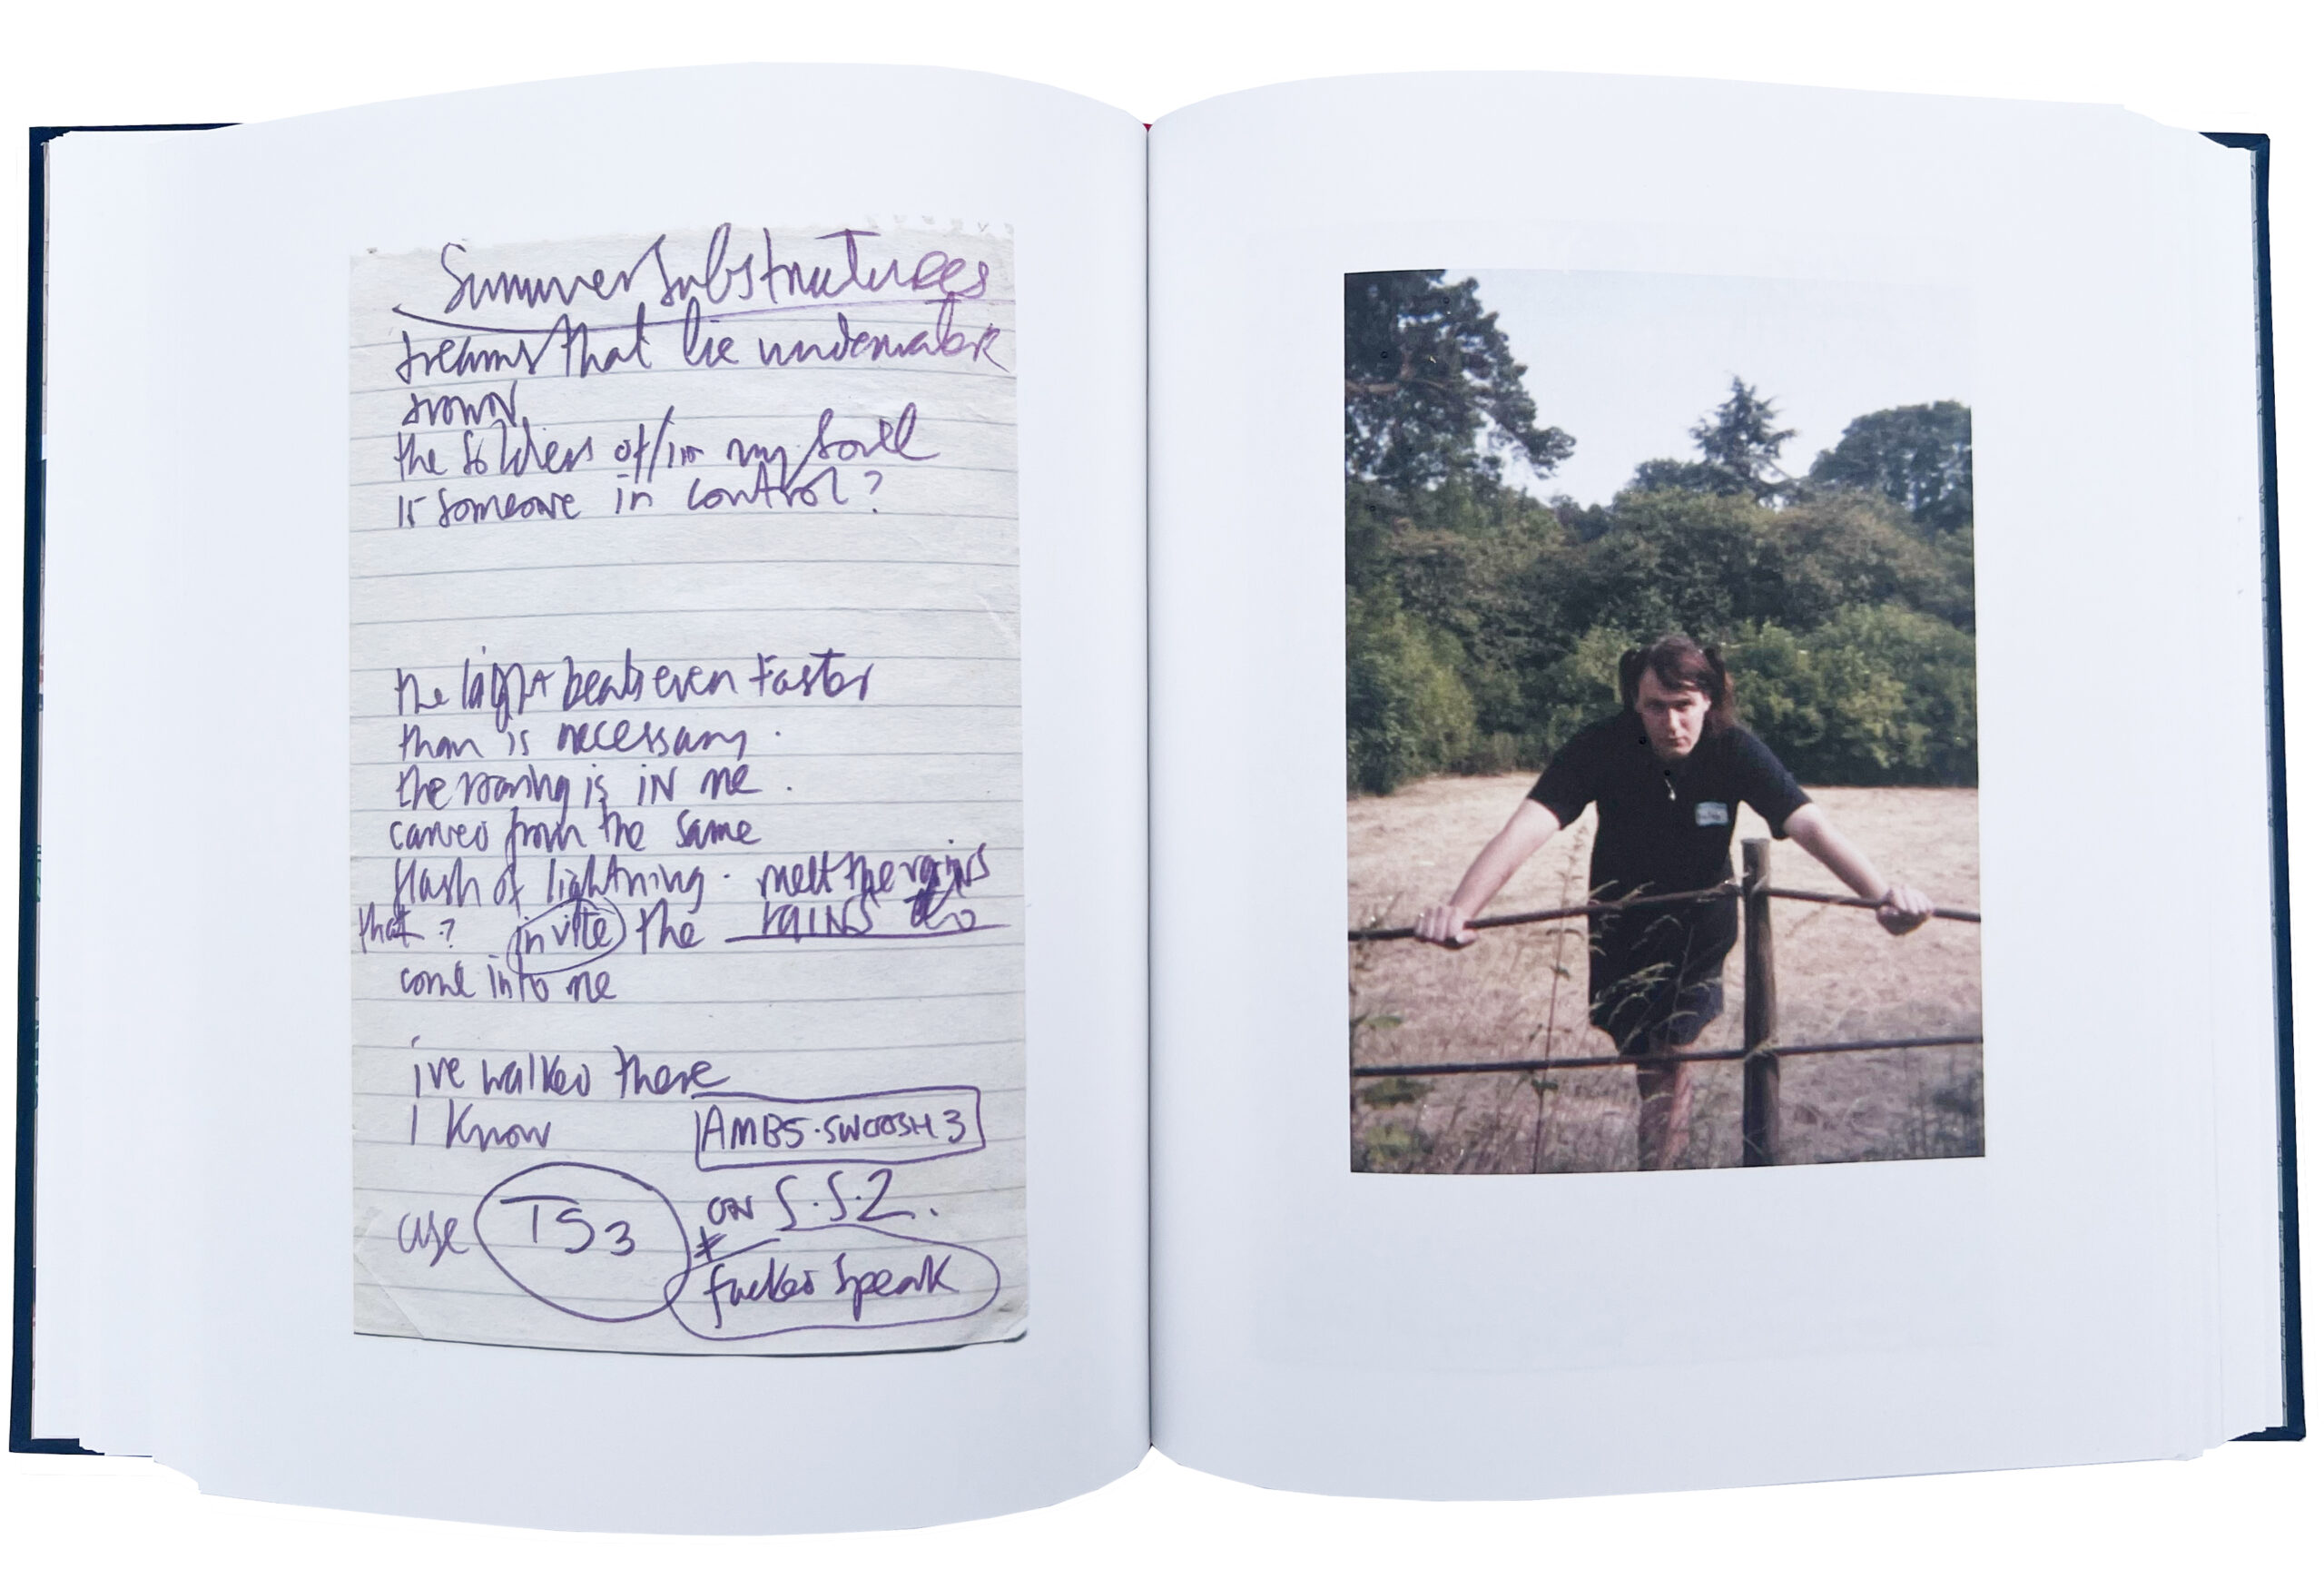 Summer Substructures
dreams that lie underwater
drown
the soldiers of/in my soul
Is someone in control?
the light beats even faster
than is necessary.
the roaring is IN me.
carved from the same
flash of lightning. melt the
that? invite the rains to
come into me
ive walked there
I Know
AMB5.SWOOSH3
use TS3 ON S.S.2.
fucked speak